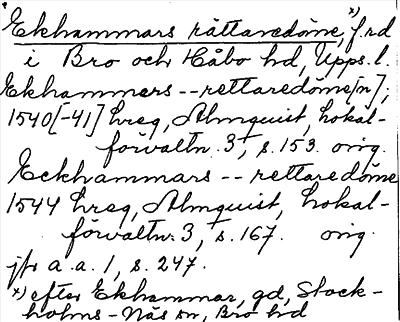 Ekhammars rättaredöme, x) f.rd
i Bro och Håbo hd, Upps. l.
Ekhammers -- rettaredöme[n];
1540[-41] hreg, Almquist, Lokal-
förvaltn. 3, s. 153. orig.
Eckhammars -- rettaredöme
1544 hreg, Almquist, Lokal-
förvaltn. 3, s. 167. orig.
jfr a.a. 1, s. 247.
x) efter Ekhammar, gd, Stock-
holms-Näs sn, Bro hd